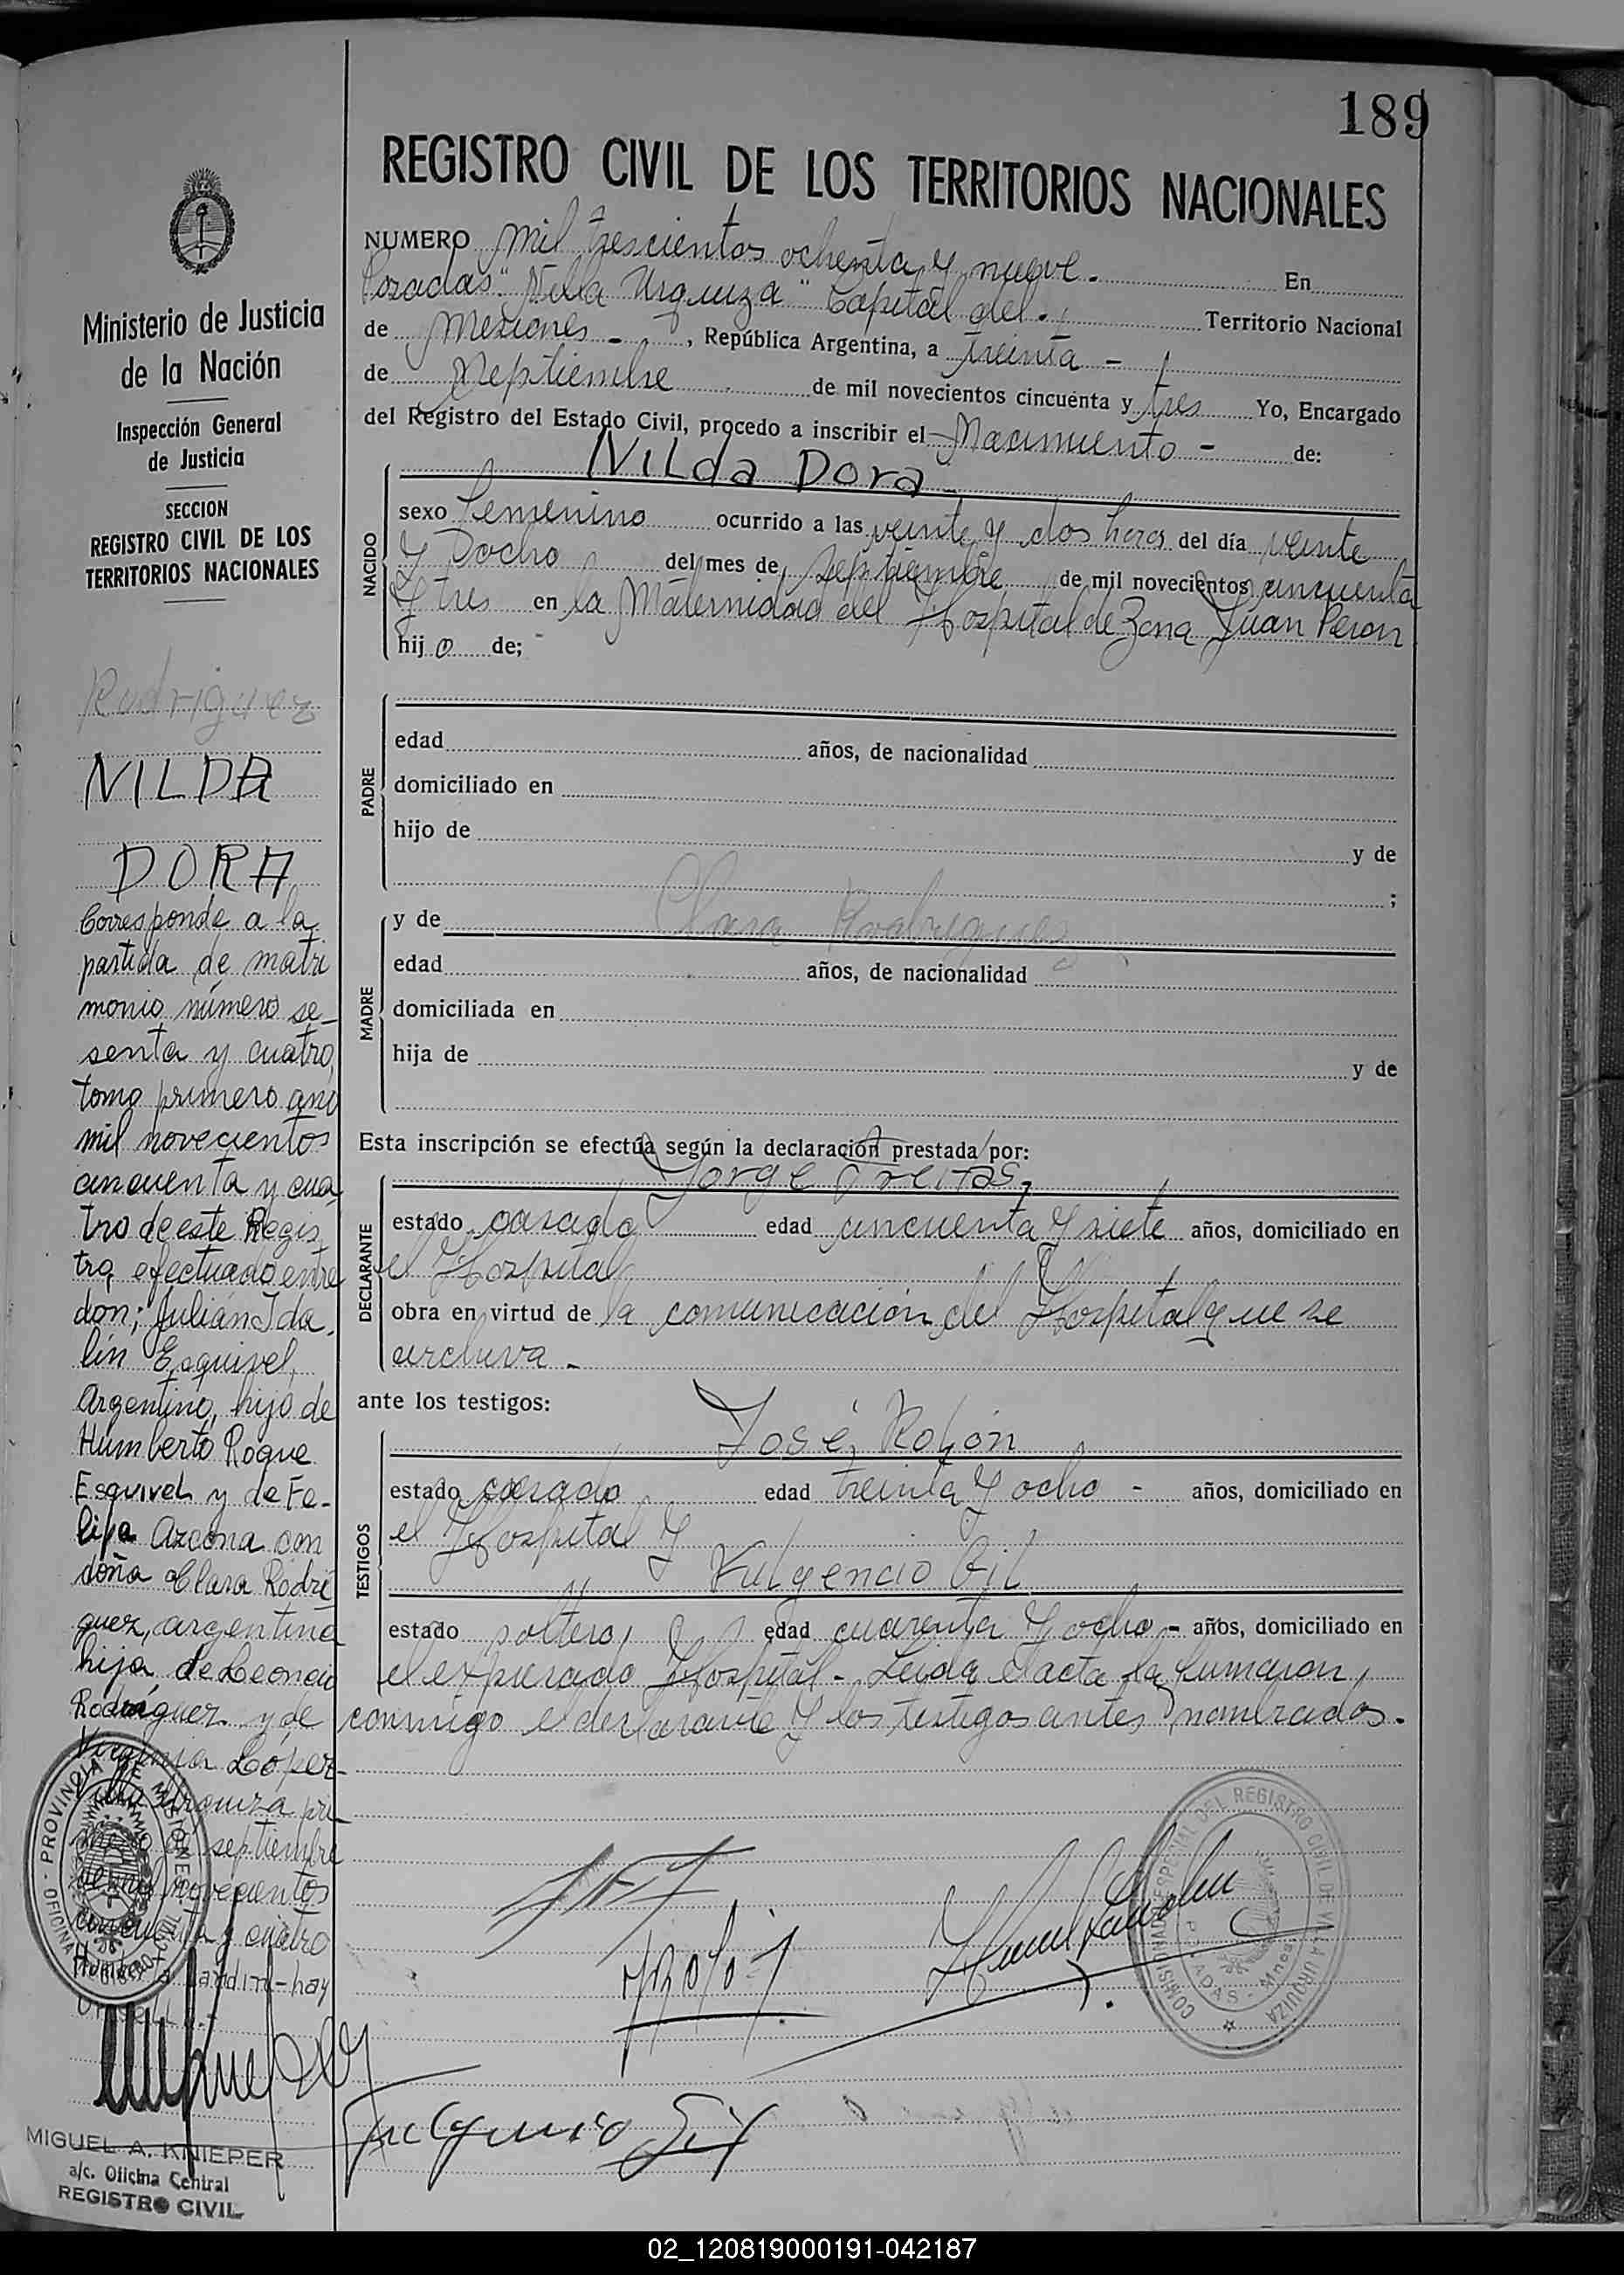 189
REGISTRO CIVIL DE LOS TERRITORIOS NACIONALES
NUMERO mil trescientos ochenta y nueve. En
Posadas "Villa Urquiza" Capital del Territorio Nacional
de Misiones - , República Argentina, a treinta -
de Septiembre de mil novecientos cincuenta y tres Yo, Encargado
del Registro del Estado Civil, procedo a inscribir el Nacimiento - de:
NACIDO
Nilda Dora
sexo femenino ocurrido a las veinte y dos horas del día veinte
y ocho del mes de septiembre de mil novecientos cincuenta
y tres en la Maternidad del Hospital de Zona Juan Peron
hij o de;
PADRE
edad años, de nacionalidad
domiciliado en
hijo de y de
;
MADRE
y de Clara Rodriguez
edad años, de nacionalidad
domiciliada en
hija de y de
Esta inscripción se efectúa según la declaración prestada por:
DECLARANTE
Jorge Freitas,
estado casado edad cincuenta y siete años, domiciliado en
el Hospital
obra en virtud de la comunicación del Hospital que se
archiva -
ante los testigos:
TESTIGOS
José Rolón
estado casado edad treinta y ocho - años, domiciliado en
el Hospital y
Fulgencio Gil
estado soltero, edad cuarenta y ocho - años, domiciliado en
el expresado Hospital - Leida el acta la firmaron,
conmigo el declarante y los testigos antes nombrados.
COMISIONADO ESPECIAL DEL REGISTRO CIVIL DE VILLA URQUIZA
POSADAS - Mnes.
Fulgencio Gil
Ministerio de Justicia
de la Nación
Inspección General
de Justicia
SECCION
REGISTRO CIVIL DE LOS
TERRITORIOS NACIONALES
Rodriguez
NILDA
DORA
Corresponde a la
partida de matri
monio número se-
senta y cuatro,
tomo primero año
mil novecientos
cincuenta y cua
tro de este Regis
tro, efectuado entre
don; Julián Ida
lin Esquivel,
Argentino, hijo de
Humberto Roque
Esquivel y de Fe-
lipa Azcona con
doña Clara Rodri
guez, argentina
hija de Leoncio
Rodriguez y de
Virginia López
Villa Urquiza pri
mero de septiembre
de mil novecientos
cincuenta y cuatro
PROVINCIA DE MISIONES - OFICINA REGISTRO CIVIL
MIGUEL A. KNIEPER
a/c. Oficina Central
REGISTRO CIVIL
02_120819000191-042187